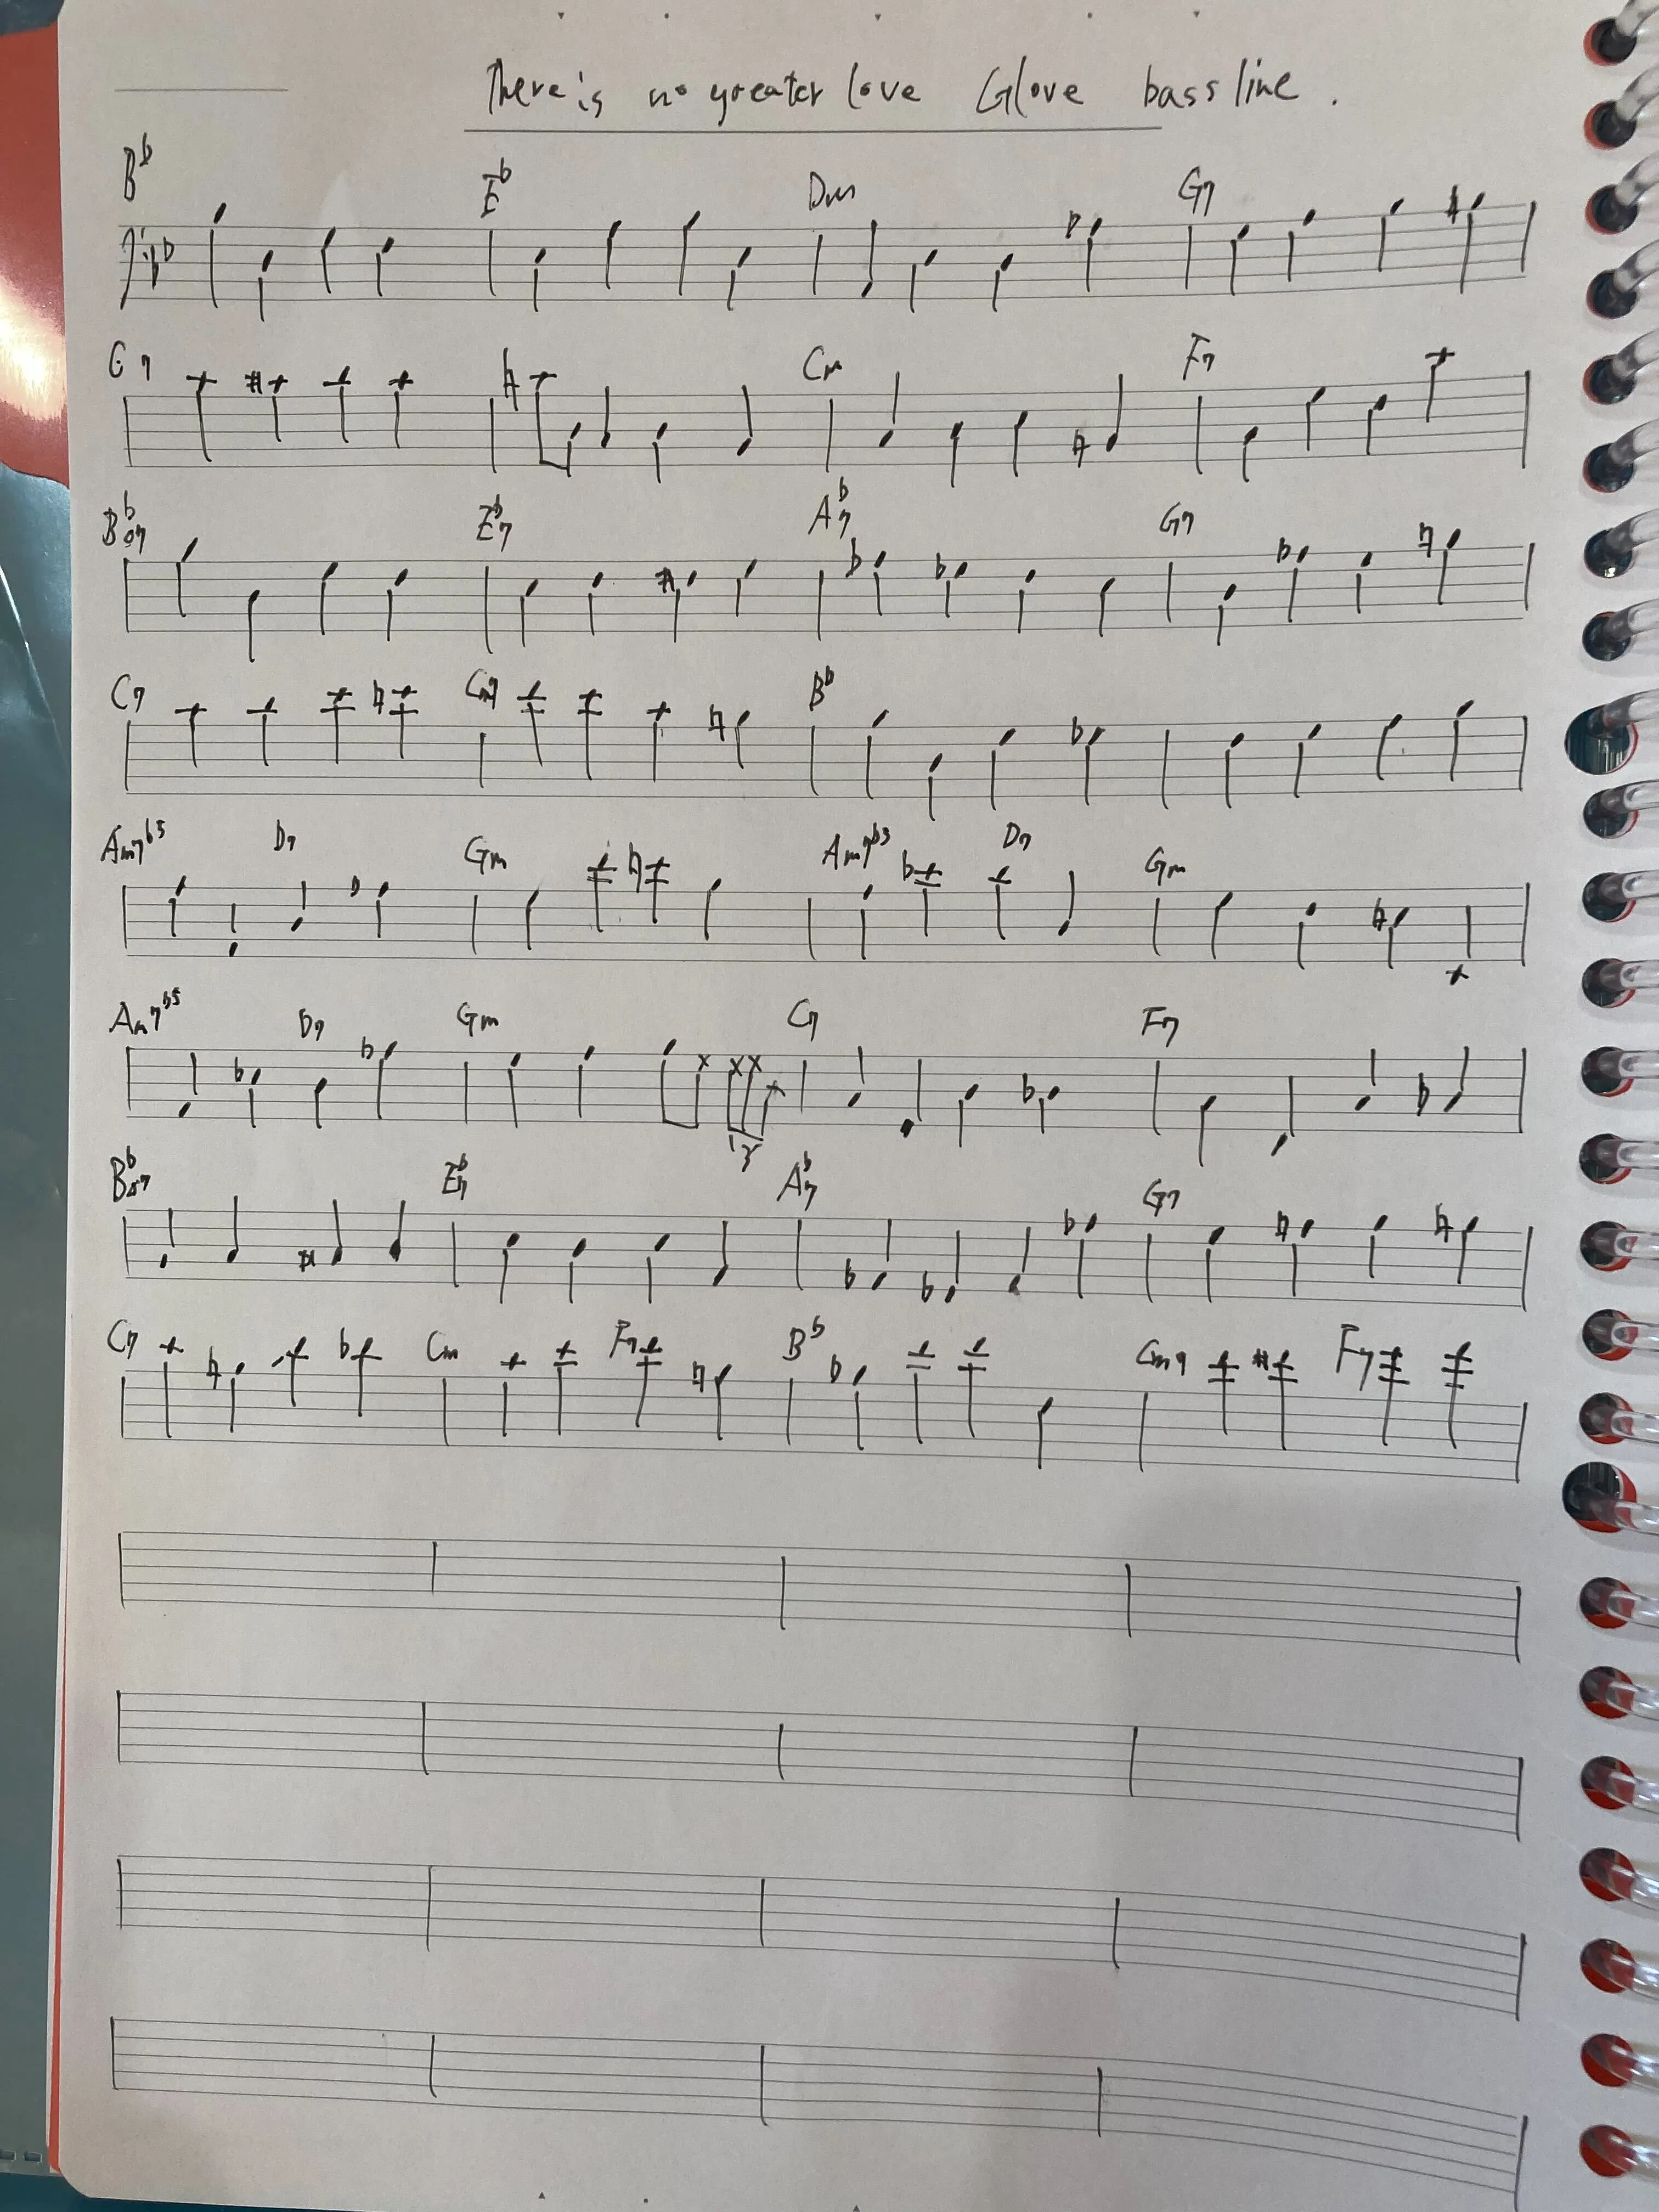 There is no greater love Glove bass line.
B♭ E♭ Dm G7
C7 Cm F7
B♭7 E♭7 A♭7 G7
C7 Cm7 B♭
Am7♭5 D7 Gm Am7♭5 D7 Gm
Am7♭5 D7 Gm C7 F7
3
B♭7 E♭7 A♭7 G7
C7 Cm F7 B♭ Cm7 F7